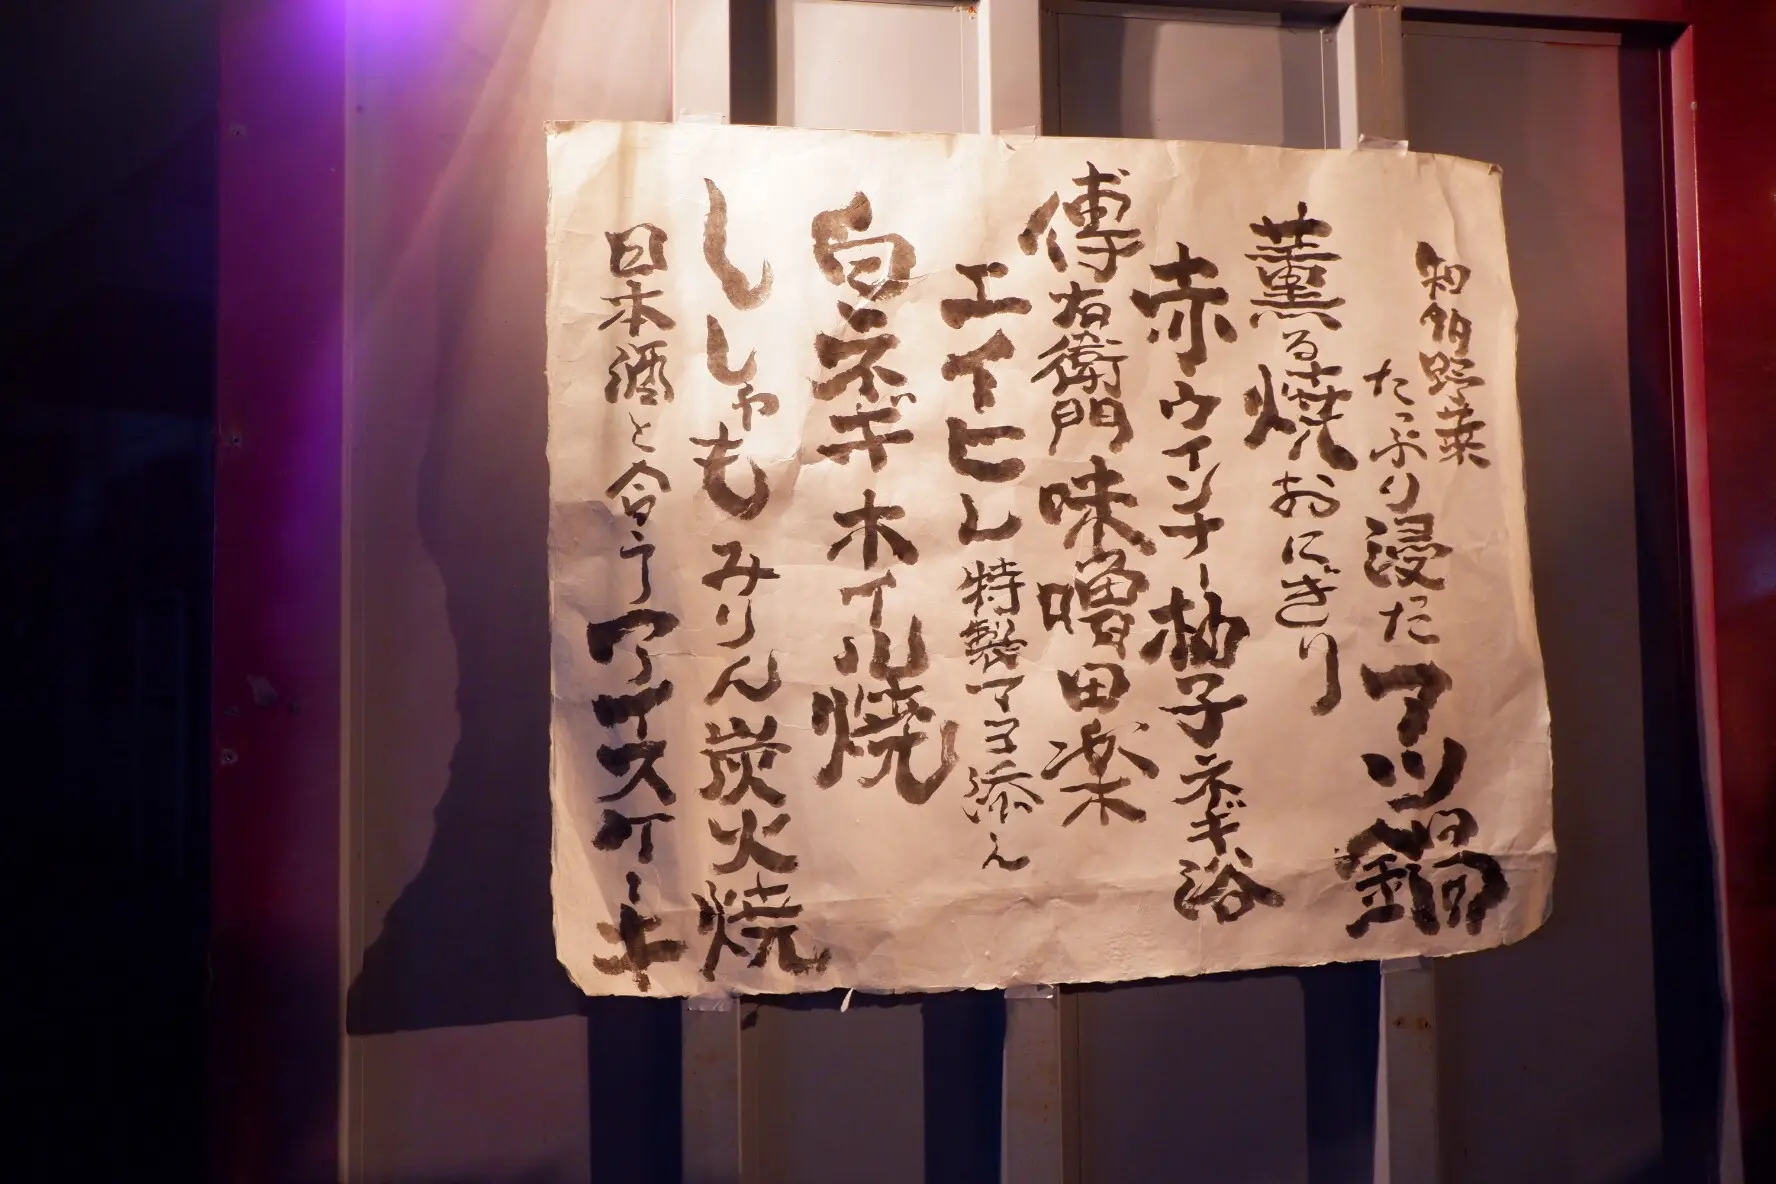 釉的野菜
たっぷり浸たアツ鍋
薫る焼おにぎり
赤ウインナー柚子ネギ浴
傳右衛門味噌田楽
エイヒレ特製マヨ添え
白ネギホイル焼
ししゃもみりん炭火焼
日本酒と合うアイスケーキ